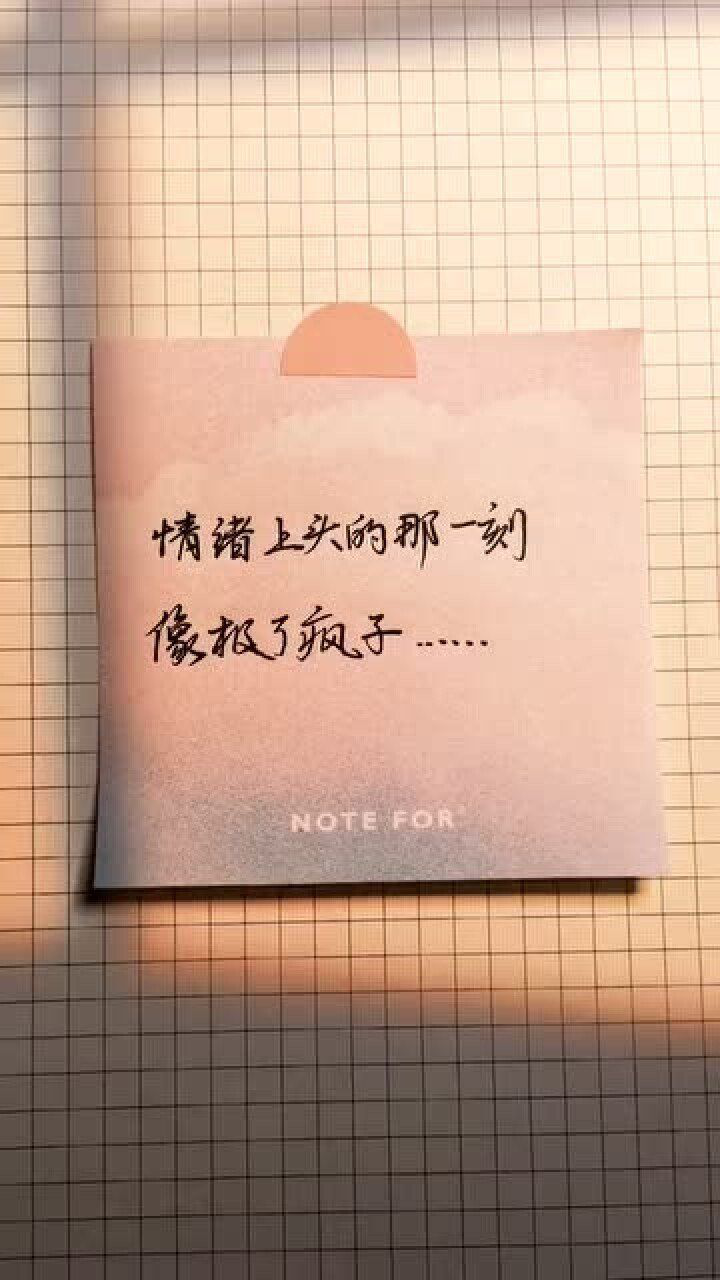 情绪上头的那一刻
像极了疯子……
NOTE FOR